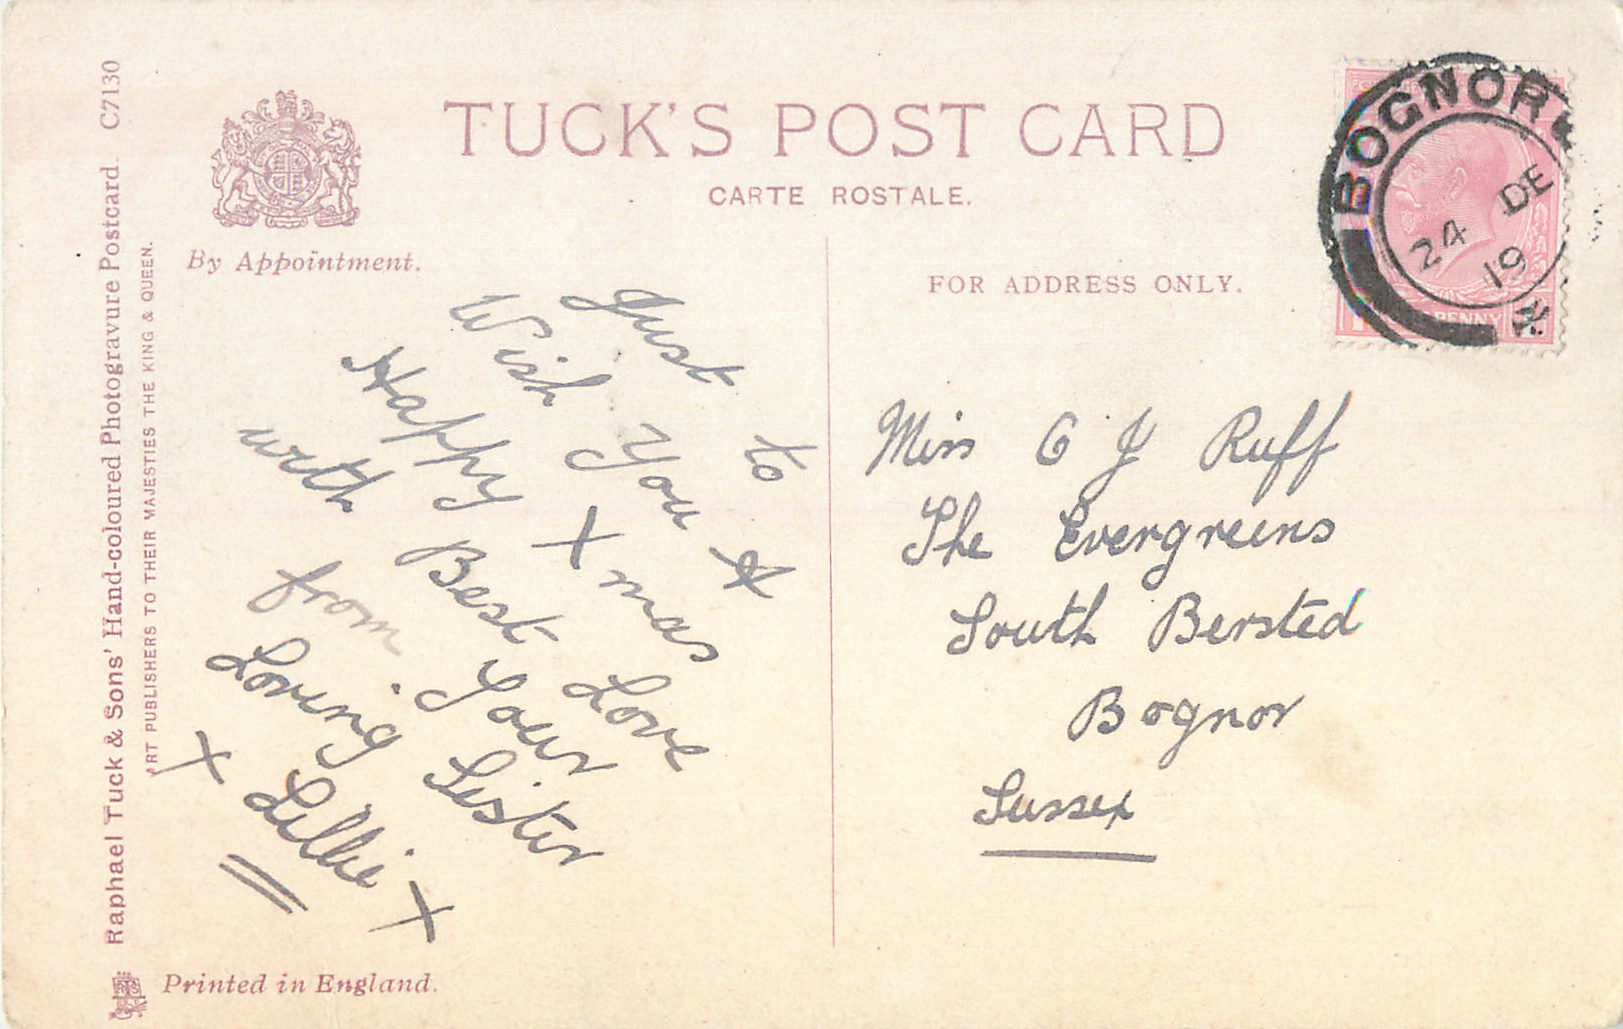 TUCK'S POST CARD
CARTE POSTALE.
By Appointment.
FOR ADDRESS ONLY.
Raphael Tuck & Sons' Hand-coloured Photogravure Postcard. C7130
ART PUBLISHERS TO THEIR MAJESTIES THE KING & QUEEN.
Printed in England.
BOGNOR
24 DE
19
PENNY
Just to
Wish You A
Happy Xmas
with Best Love
from Your
Loving Sister
X Lillie X
Miss G J Ruff
The Evergreens
South Bersted
Bognor
Sussex